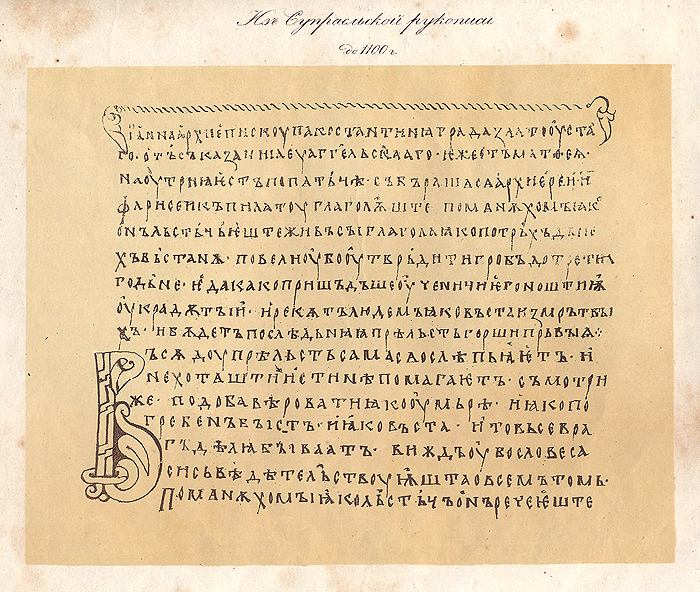 Изъ Супрасльской рукописи
до 1100 г.
їѡаннаархиепискоупакостантиніаградазлатооуста
го·отъсъказаниꙗеуаггельскааго·ѥжеотъматѳея·
наоутриꙗѥстъпопѧтъцѣ·събърашасѧархиереи·и
фарисеикъпилатоуглаголѭште помѧнѫхомъꙗко
онъльстьцьѥштеживъсыглаголаꙗкопотрьхъдьне
хъвъстанѫ·повелиоубооутврьдитигробъдотретии
годьне·ꙇдакакопришьдъшеоученициѥгоноштиѭ
оукрадѫтъи·ꙇрекѫтълюдемъꙗковъстаизмрътвы
хъ·ибѫдетъпослѣдьнꙗꙗпрѣльстьгоршипрьвыѧ·
Вьсѫдоупрѣльстьсамасѧослѣпьꙗѥтъ·и
нехотѧштиистинѣпомагаѥтъ·съмотри
же·подобавѣроватиꙗкооумьрѣ·иꙗкопо
гребенъбыстъ·иꙗковъста·итовьсевра
гъделюбывaатъ·виждъоубословеса
сисъвѣдѣтельствоуѭштаовсемьтомь·
помѧнѫхомыꙗкольстьцьонъречеѥште